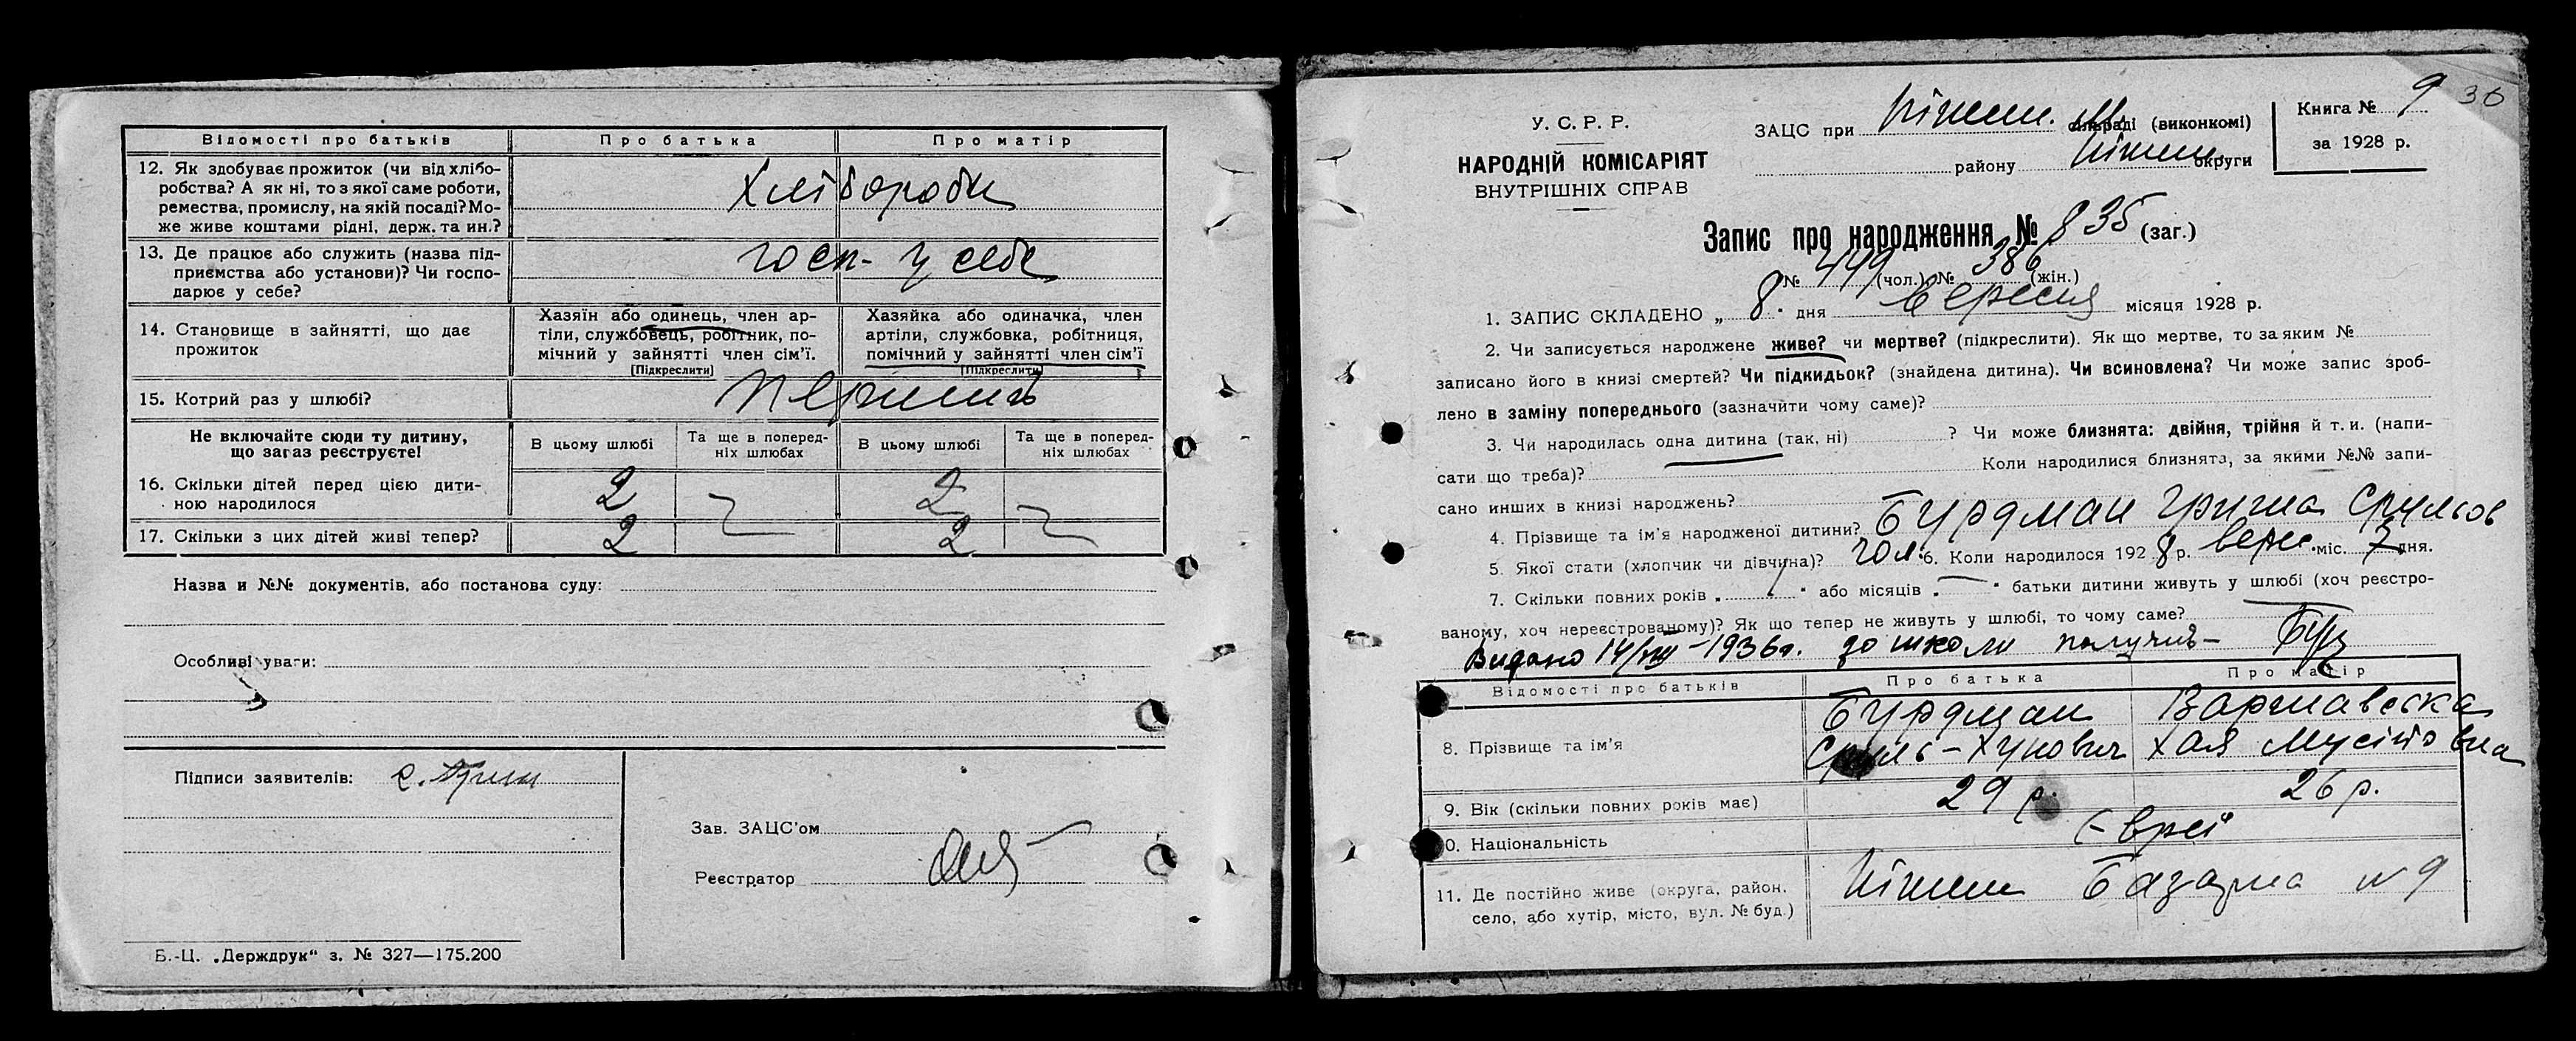 Відомості про батьків Про батька Про матір
12. Як здобуває прожиток (чи від хлібо-
робства? А як ні, то з якої саме роботи,
ремества, промислу, на якій посаді? Мо-
же живе коштами рідні, держ. та ин.?
Хлібороби
13. Де працює або служить (назва під-
приємства або установи)? Чи госпо-
дарює у себе?
госп- у себе
14. Становище в зайнятті, що дає
прожиток
Хазяїн або одинець, член ар-
тіли, службовець, робітник, по-
мічний у зайнятті член сім'ї.
(Підкреслити)
Хазяйка або одиначка, член
артіли, службовка, робітниця,
помічний у зайнятті член сім'ї
(Підкреслити)
15. Котрий раз у шлюбі?
Не включайте сюди ту дитину,
що зараз реєструєте!
В цьому шлюбі Та ще в поперед-
ніх шлюбах В цьому шлюбі Та ще в поперед-
ніх шлюбах
16. Скільки дітей перед цією дити-
ною народилося 2 2
17. Скільки з цих дітей живі тепер? 2 2
Назва и №№ документів, або постанова суду:
Особливі уваги:
Підписи заявителів:
Зав. ЗАЦС'ом
Реєстратор
Б.-Ц. „Держдрук“ з. № 327—175.200
У. С. Р. Р.
НАРОДНІЙ КОМІСАРІЯТ
ВНУТРІШНІХ СПРАВ
ЗАЦС при Ніжин. сільраді (виконкомі)
району Ніжин. округи
Книга № 9
за 1928 р.
36
Запис про народження № 835 (заг.)
№ 449 (чол.) № 386 (жін.)
1. ЗАПИС СКЛАДЕНО „ 8 " дня Вересня місяця 1928 р.
2. Чи записується народжене живе? чи мертве? (підкреслити). Як що мертве, то за яким №
записано його в книзі смертей? Чи підкидьок? (знайдена дитина). Чи всиновлена? Чи може запис зроб-
лено в заміну попереднього (зазначити чому саме)?
3. Чи народилась одна дитина (так, ні) ? Чи може близнята: двійня, трійня й т. и. (напи-
сати що треба)? Коли народилися близнята, за якими №№ запи-
сано инших в книзі народжень?
4. Прізвище та ім'я народженої дитини? Бурдман Гриша Срульов
5. Якої стати (хлопчик чи дівчина)? чол. 6. Коли народилося 1928 р. верес. міс. 7 дня.
7. Скільки повних років „ " або місяців „ — " батьки дитини живуть у шлюбі (хоч реєстро-
ваному, хоч нереєстрованому)? Як що тепер не живуть у шлюбі, то чому саме?
Видано 14/VIII-1936 г. до школи получив-
Відомості про батьків Про батька Про матір
8. Прізвище та ім'я
Бурдман
Сруль-Хунович
Варшавська
Хая
9. Вік (скільки повних років має) 29 р. 26 р.
10. Національність Євреї
11. Де постійно живе (округа, район,
село, або хутір, місто, вул. № буд.)
Ніжин Базарна № 9